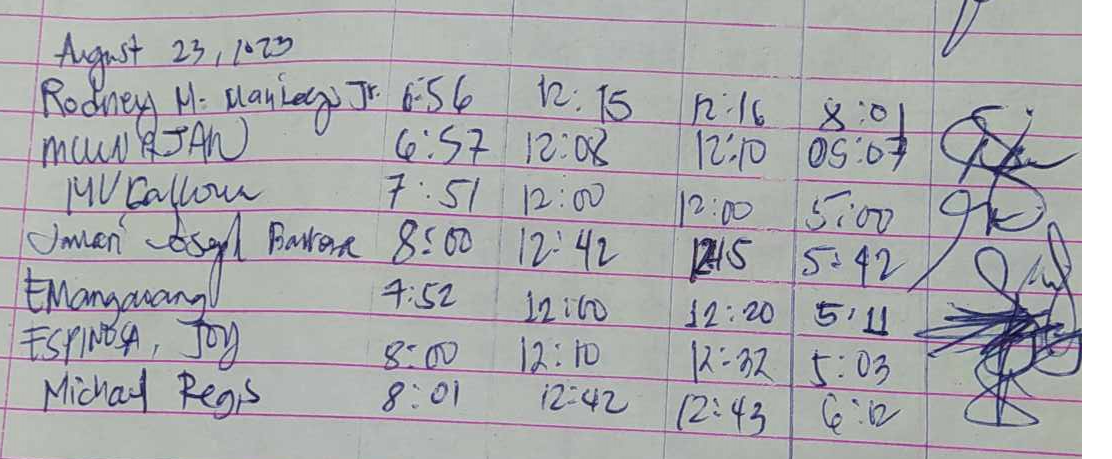 August 23, 2023
Rodney M. Jr. 6:56 12:15 12:16 8:01
6:57 12:08 12:10 05:07
7:51 12:00 12:00 5:00
Joseph 8:00 12:42 1245 5:42
EMangawang 7:52 12:00 12:20 5:11
ESPINOSA, JOY 8:00 12:10 12:32 5:03
Michael Regis 8:01 12:42 12:43 6:12